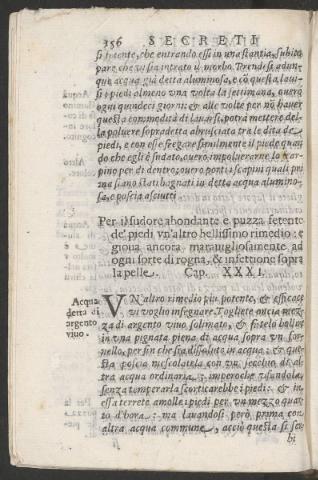 356 SECRETI
si potente, che entrando essi in una stanza, subito
pare che vi sia intrato il morbo. Prendesi adun-
que acqua già detta aluminosa, e cõ questa laui-
si i piedi almeno una volta la settimana, ouero
ogni quindeci giorni: & alle volte per nõ hauer
questa commodità di lauarsi, potrà mettere del-
la poluere sopradetta abrusciata tra le dita de
piedi, e con essa fregare sentilmente il piede quan
do che egli è sudato, ouero, impoluerarne lo scar-
pino per di dentro; ouero porti i scapini quali pri
ma siano stati bagnati in detta acqua alumino-
sa, e poscia asciutti.
Per il sudore abondante e puzza fetente
de' piedi vn'altro bellissimo rimedio: e
gioua ancora marauigliosamente ad
ogni sorte di rogna, & infettione sopra
la pelle. Cap. XXXI.
Acqua
detta di
argento
viuo.
VN'altro rimedio più potente, & efficace
vi voglio insegnare. Togliete oncia mez-
za di argento viuo solimato, & fatelo bollire
in una pignata piena di acqua sopra un for-
nello, per fin che sia dissoluto in acqua: & que-
sta poscia mescolatela con un secchio di al-
tra acqua ordinaria: imperoche usandola,
senza temperarla scorticarebbe i piedi: & in
essa terrete a molle i piedi per un mezzo quar-
to d'hora: ma lauandosi però prima con
altra acqua commune, acciò questa si ser-
bi